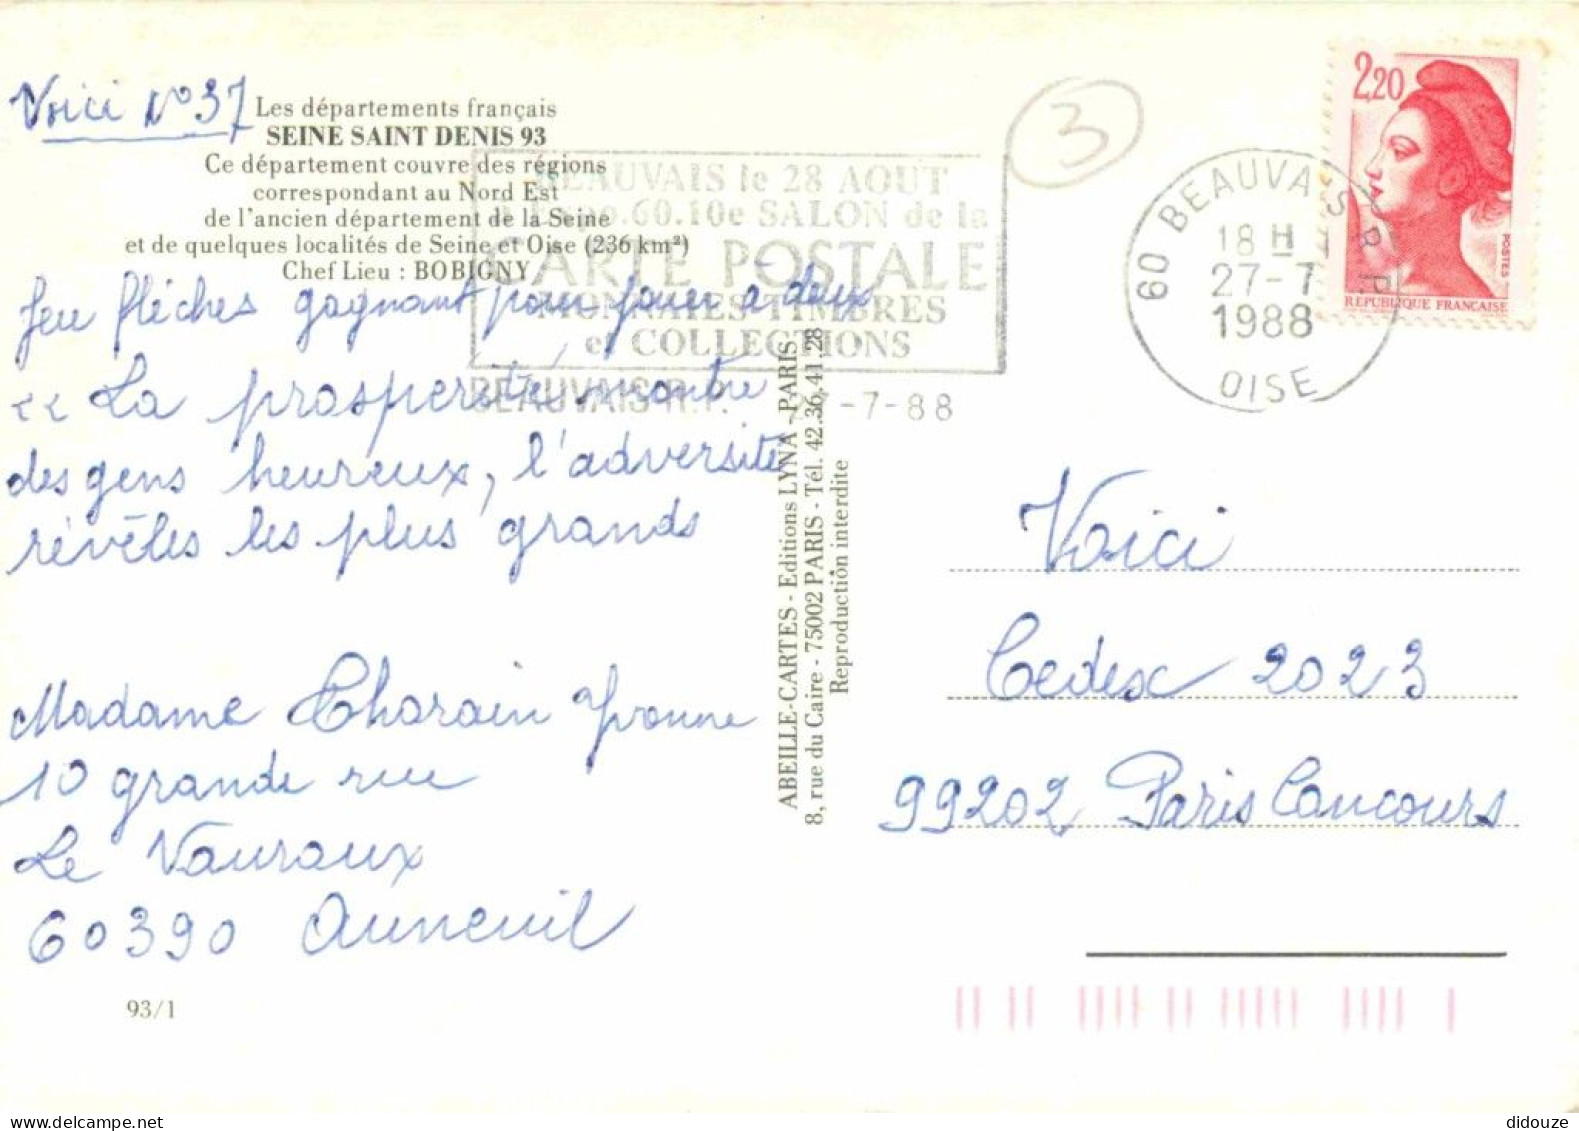 Voici N°37
Les départements français
SEINE SAINT DENIS 93
Ce département couvre des régions
correspondant au Nord Est
de l'ancien département de la Seine
et de quelques localités de Seine et Oise (236 km²)
Chef Lieu : BOBIGNY
Jeu flèches gagnant pour jouer à deux
<< La prosperité montre
des gens heureux, l'adversité
révèles les plus grands
Madame Tharain Yvonne
10 grande rue
Le Vauroux
60390 Auneuil
93/1
BEAUVAIS le 28 AOUT
Expo.60.10e SALON de la
CARTE POSTALE
MONNAIES-TIMBRES
et COLLECTIONS
BEAUVAIS R.P. 27-7-88
3
60 BEAUVAIS R.P.
18 H
27-7
1988
OISE
2,20
POSTES
REPUBLIQUE FRANÇAISE
ABEILLE-CARTES - Editions LYNA - PARIS
8, rue du Caire - 75002 PARIS - Tél. 42.36.41.28
Reproduction interdite
Voici
Cedex 2023
99202 Paris Concours
didouze